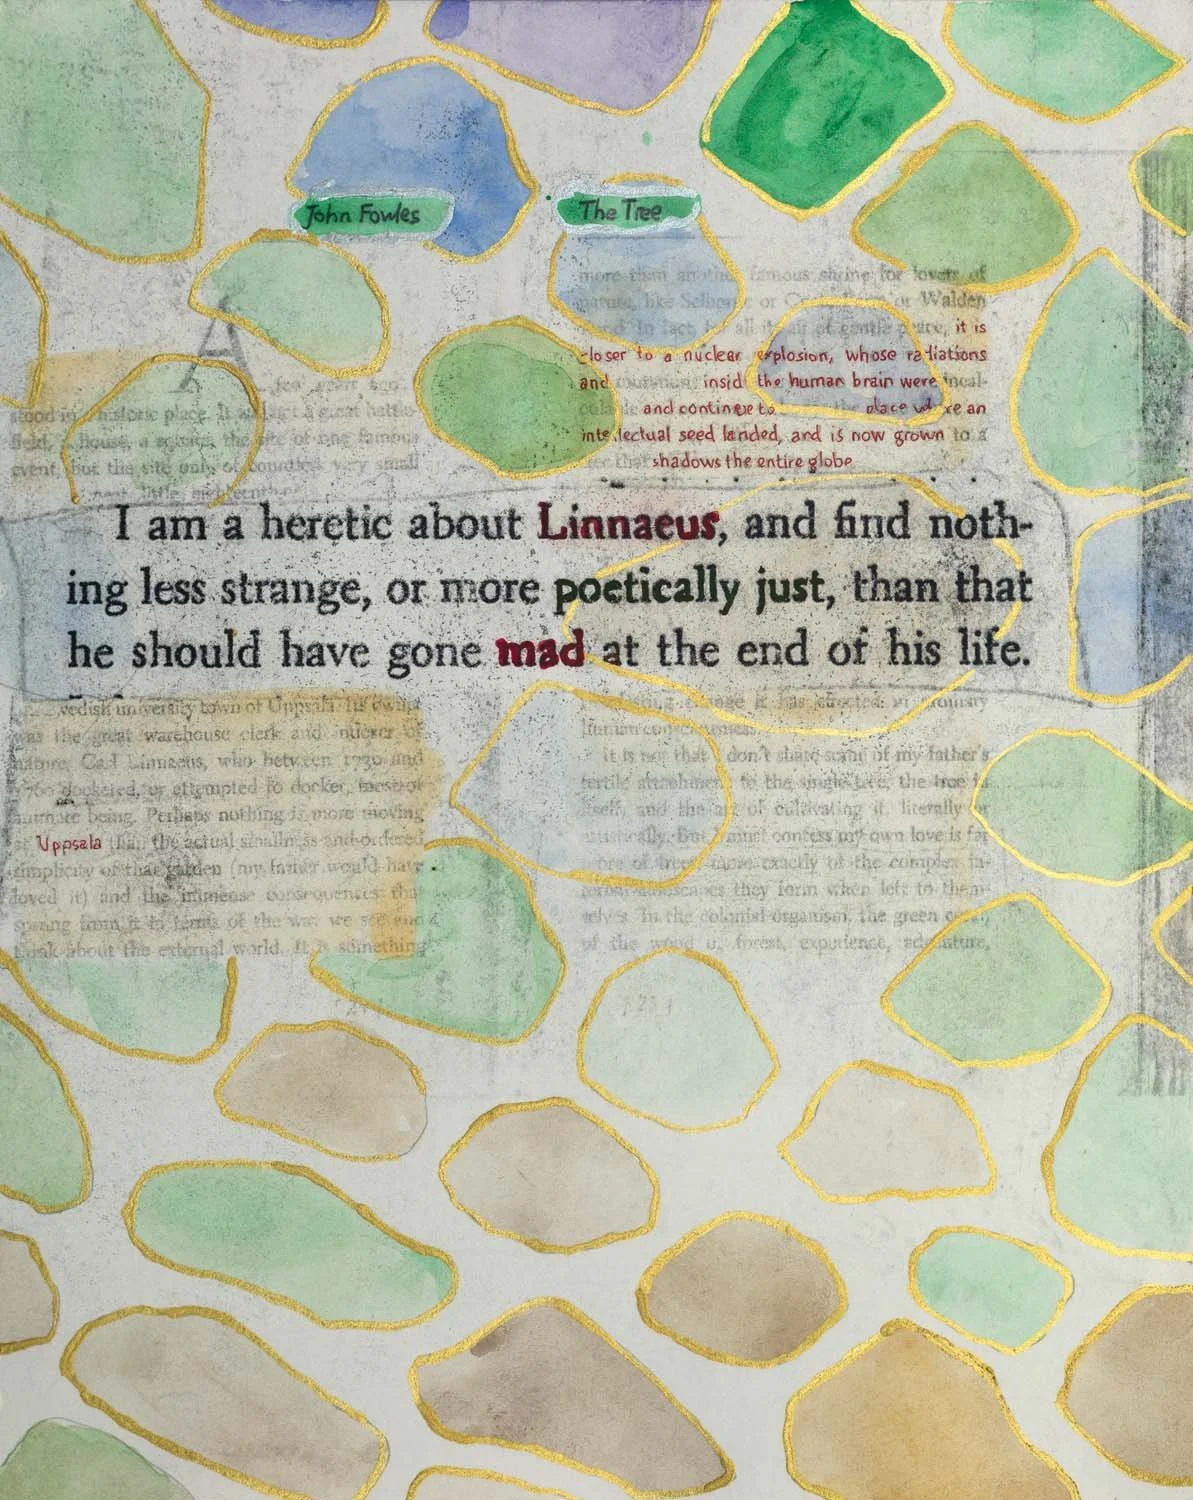 John Fowles
The Tree
more than another famous shrine for lovers of
nature, like Selborne or or Walden
Pond. In fact, for all its air of gentle peace, it is
closer to a nuclear explosion, whose radiations
and mutations inside the human brain were incal-
and continue to the place where an
intellectual seed landed, and is now grown to a
tree that shadows the entire globe
A
few years ago
stood in a historic place. It was not a great battle-
field, a house, a square, the site of one famous
event, but the site only of countless very small
neat, little, and
I am a heretic about Linnaeus, and find noth-
ing less strange, or more poetically just, than that
he should have gone mad at the end of his life.
Swedish university town of Uppsala. Its owner
was the great warehouse clerk and indexer of
nature, Carl Linnaeus, who between 1730 and
1760 docketed, or attempted to docket, most of
animate being. Perhaps nothing is more moving
at Uppsala than the actual smallness and ordered
simplicity of that garden (my father would have
loved it) and the immense consequences that
sprang from it in terms of the way we see and
think about the external world. It is something
change it has effected in ordinary
human consciousness.
It is not that I don't share some of my father's
fertile attachment to the single tree, the tree in
itself, and the art of cultivating it, literally or
artistically. But I must confess my own love is far
more of trees, more exactly of the complex in-
ternal landscapes they form when left to them-
selves. In the colonial organism, the green coral,
of the wood or forest, experience, adventure,